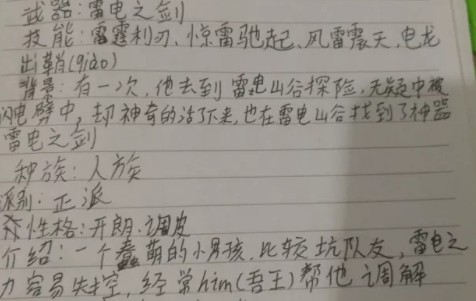 武器：雷电之剑
技能：雷霆利刃、惊雷驰起、风雷震天、电龙
出鞘(qiào)
背景：有一次，他去到雷电山谷探险，无疑中被
闪电劈中，却神奇的活了下来，也在雷电山谷找到了神器
雷电之剑
种族：人族
派别：正派
性格：开朗、调皮
介绍：一个蠢萌的小男孩，比较坑队友，雷电之
力容易失控，经常him(吾王)帮他调解